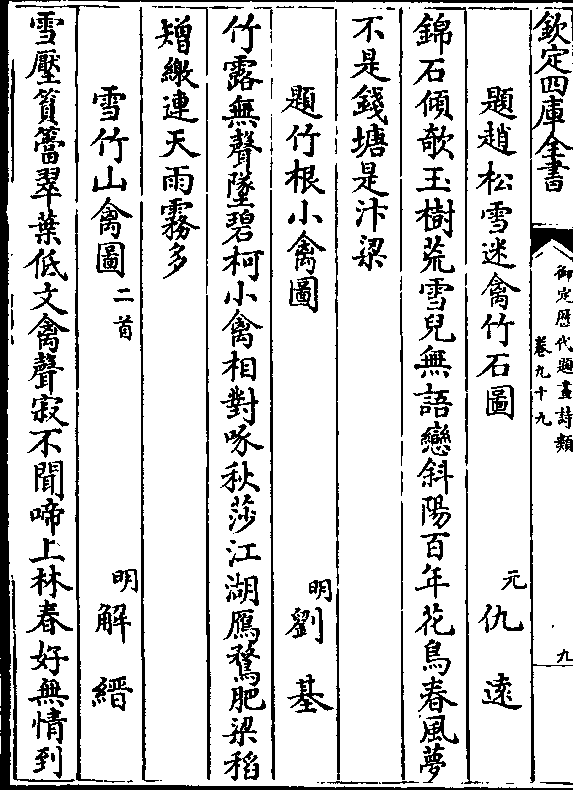 欽定四庫全書
御定歷代題畫詩類
卷九十九
九
題趙松雪迷禽竹石圖
元
仇遠
錦石傾欹玉樹荒雪兒無語戀斜陽百年花鳥春風夢
不是錢塘是汴梁
題竹根小禽圖
明
劉基
竹露無聲墜碧柯小禽相對啄秋莎江湖鴈鶩肥梁稻
矰繳連天雨霧多
雪竹山禽圖
二首
明
解縉
雪壓篔簹翠葉低文禽聲寂不聞啼上林春好無情到